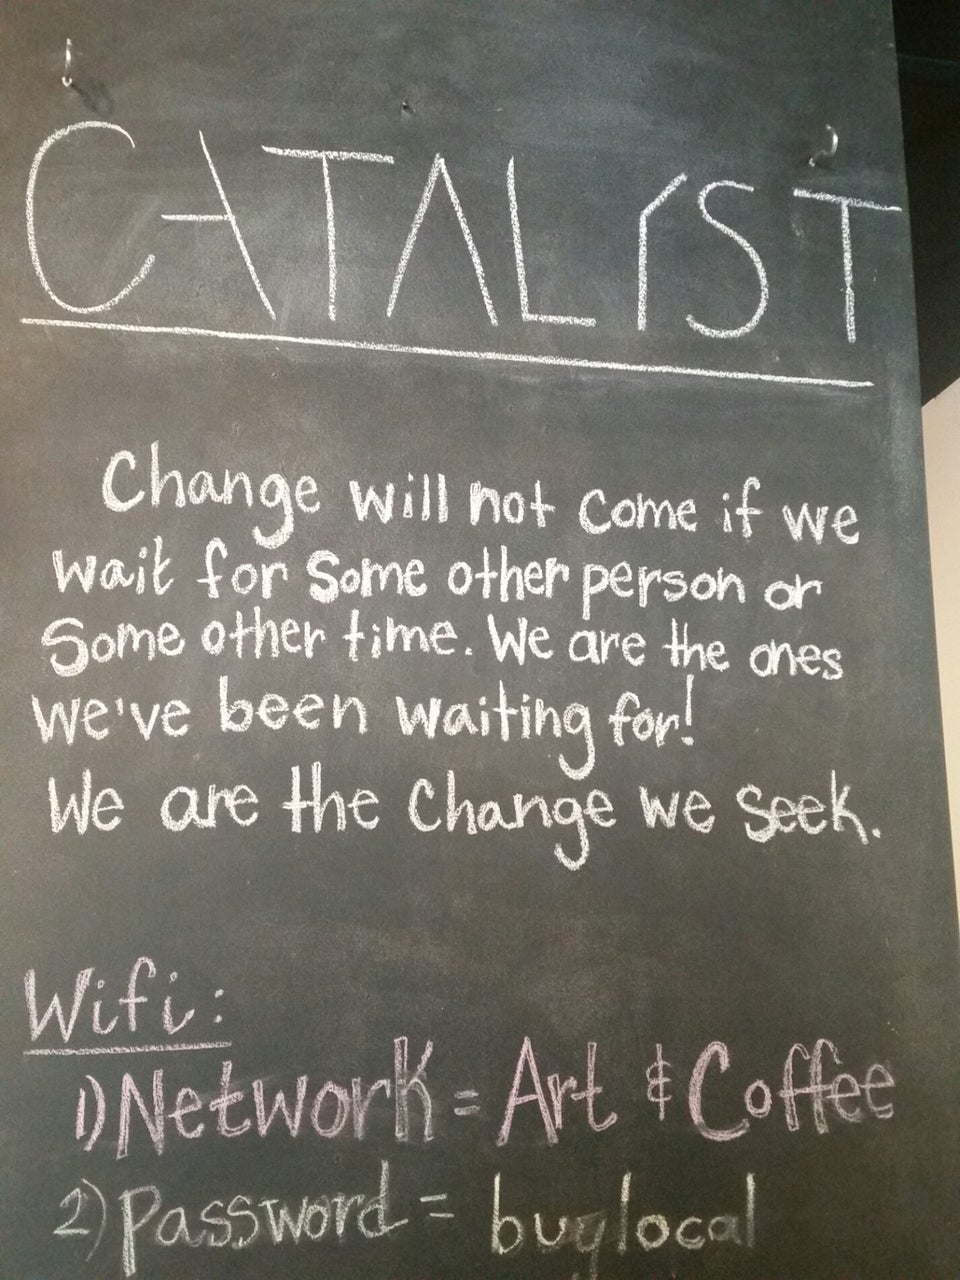 CATALYST
Change will not come if we
wait for some other person or
some other time. We are the ones
we've been waiting for!
We are the change we seek.
Wifi:
1) Network = Art & Coffee
2) Password = buylocal